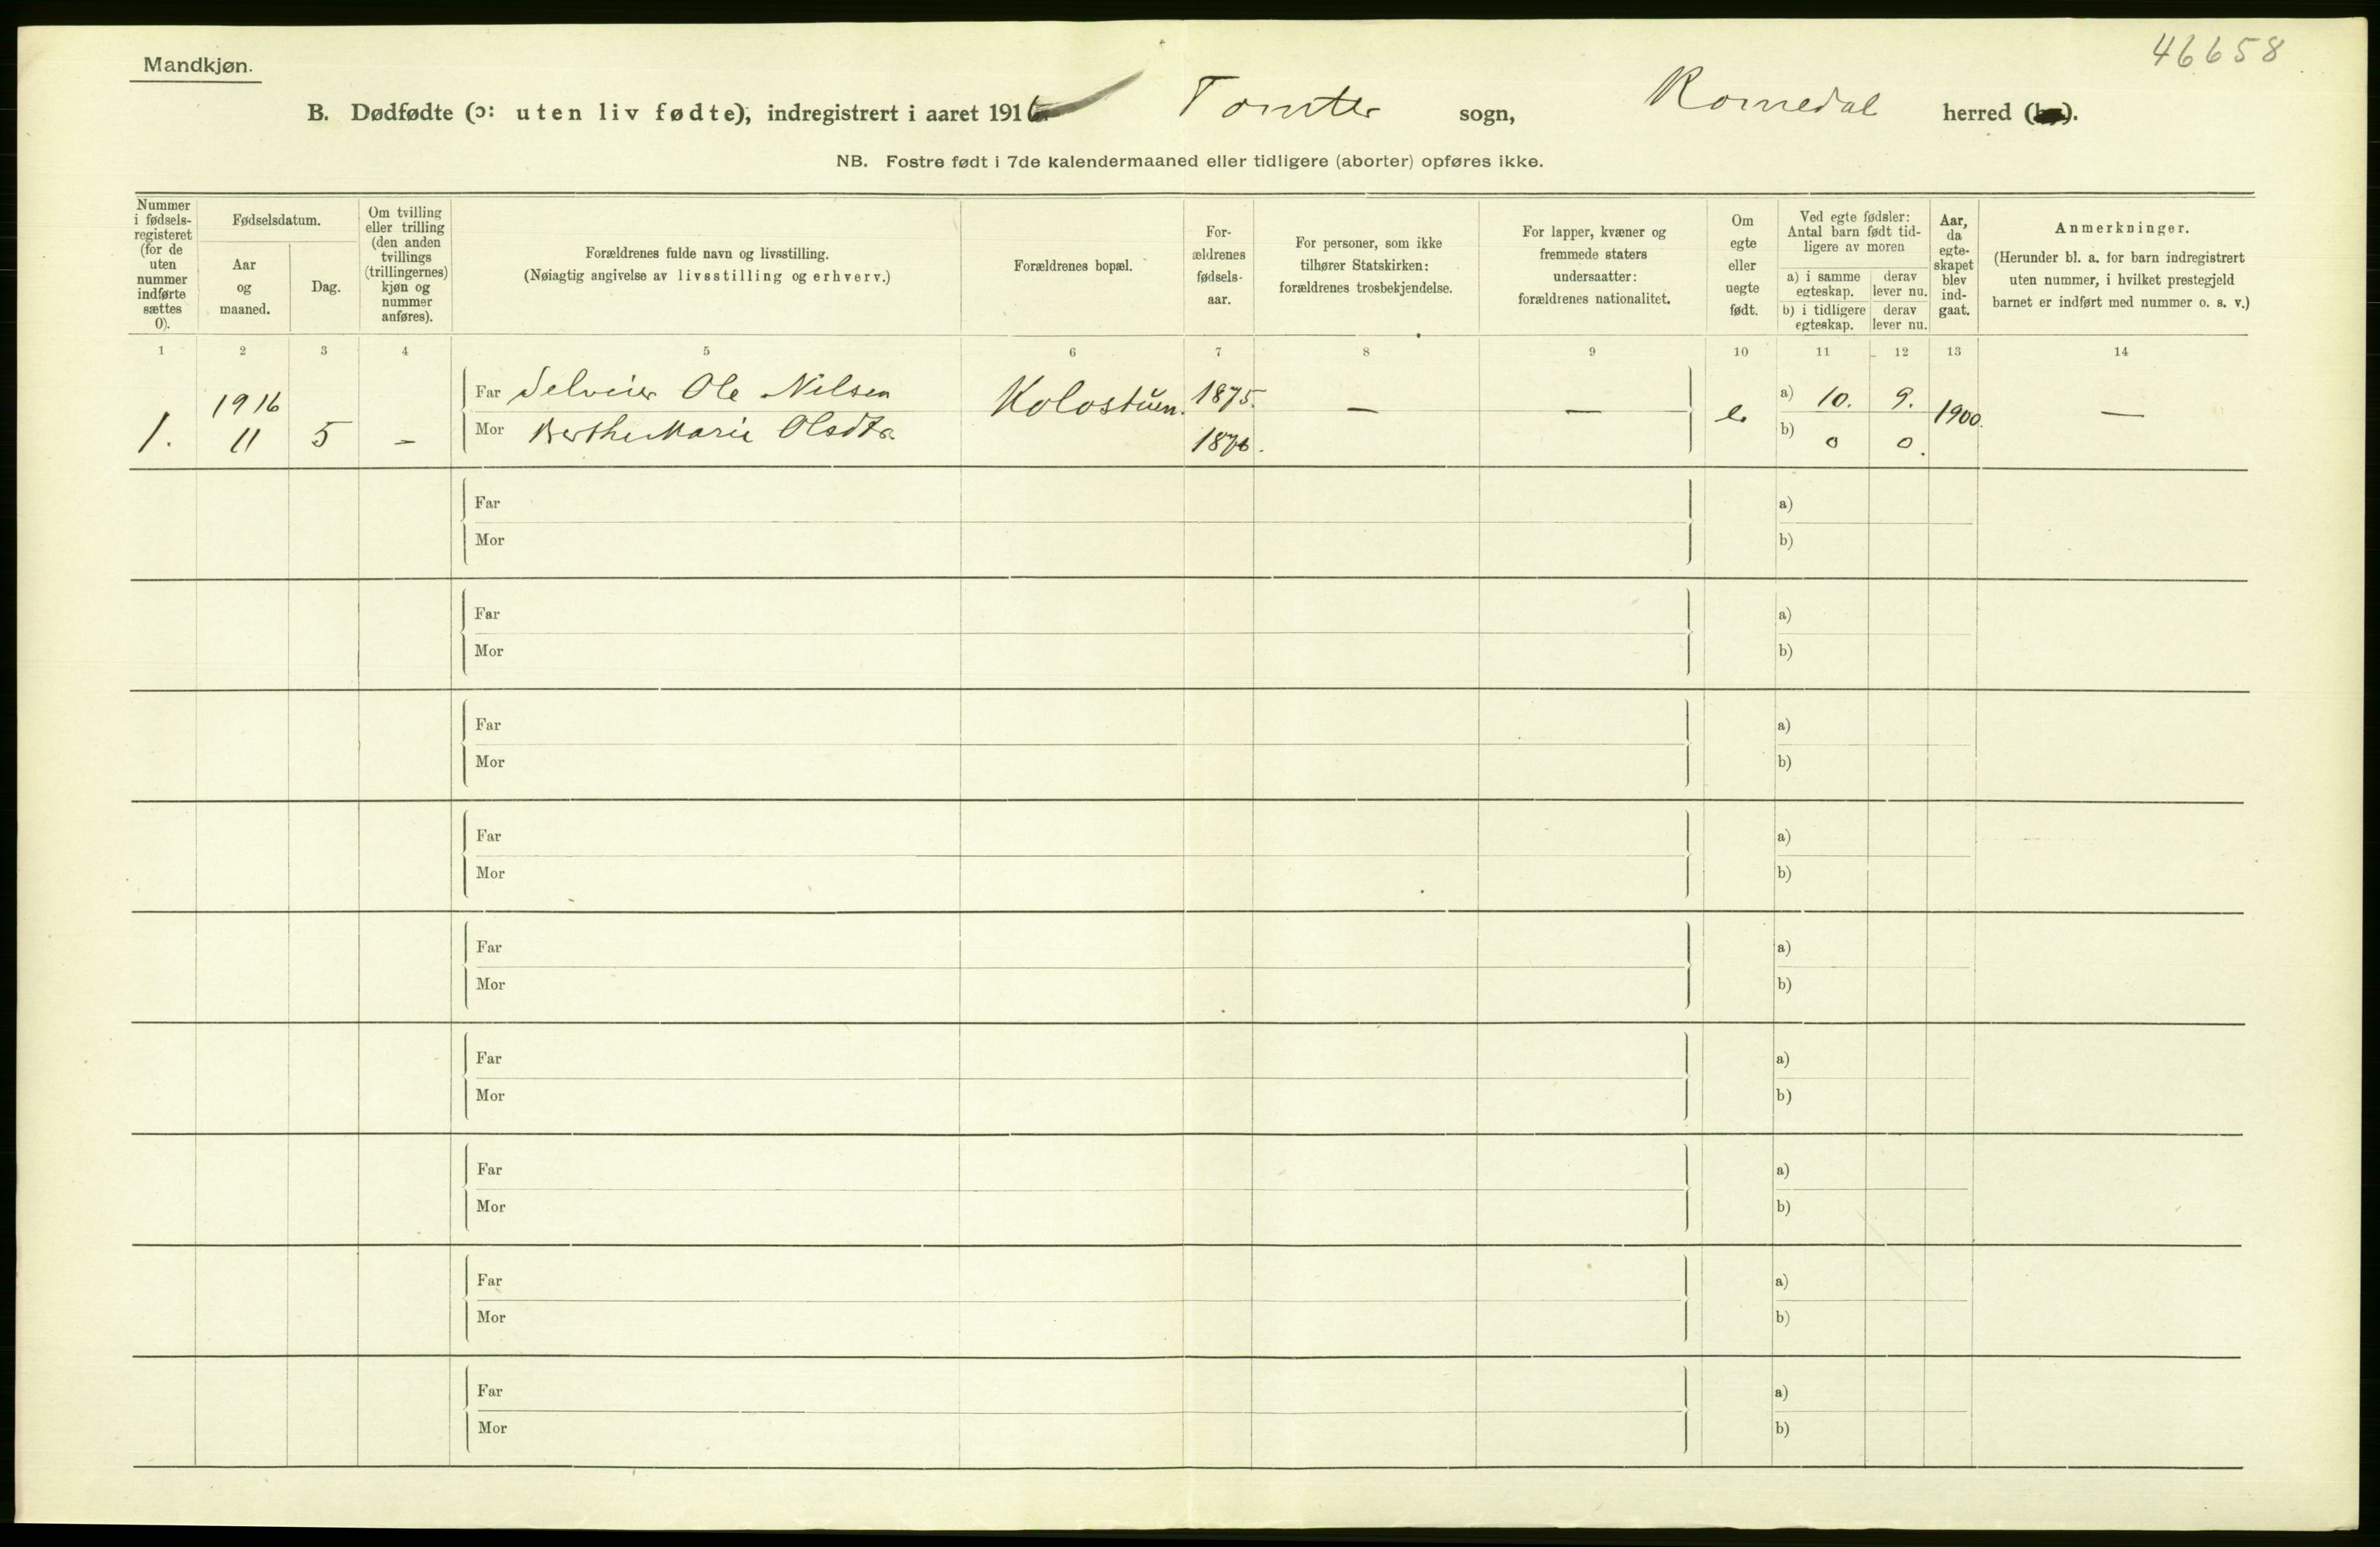 46658
Mandkjøn.
B. Dødfødte (ɔ: uten liv fødte), indregistrert i aaret 1916 Tomter sogn, Romedal herred ( ).
NB. Fostre født i 7de kalendermaaned eller tidligere (aborter) opføres ikke.
Nummer
i fødsels-
registeret
(for de
uten
nummer
indførte
sættes
0).
Fødselsdatum.
Aar
og
maaned.
Dag.
Om tvilling
eller trilling
(den anden
tvillings
(trillingernes)
kjøn og
nummer
anføres).
Forældrenes fulde navn og livsstilling.
(Nøiagtig angivelse av livsstilling og erhverv.)
Forældrenes bopæl.
For-
ældrenes
fødsels-
aar.
For personer, som ikke
tilhører Statskirken:
forældrenes trosbekjendelse.
For lapper, kvæner og
fremmede staters
undersaatter:
forældrenes nationalitet.
Om
egte
eller
uegte
født.
Ved egte fødsler:
Antal barn født tid-
ligere av moren
a) i samme
egteskap.
derav
lever nu.
b) i tidligere
egteskap.
derav
lever nu.
Aar,
da
egte-
skapet
blev
ind-
gaat.
Anmerkninger.
(Herunder bl. a. for barn indregistrert
uten nummer, i hvilket prestegjeld
barnet er indført med nummer o. s. v.)
1 2 3 4 5 6 7 8 9 10 11 12 13 14
1. 1916 11 5 –
Far Selveier Ole Nilsen
Mor Berthe Marie Olsdtr.
Kolostuen.
1875.
1876.
— — e. a) 10. 9. 1900. —
b) 0 0.
Far a)
Mor b)
Far a)
Mor b)
Far a)
Mor b)
Far a)
Mor b)
Far a)
Mor b)
Far a)
Mor b)
Far a)
Mor b)
Far a)
Mor b)
Far a)
Mor b)